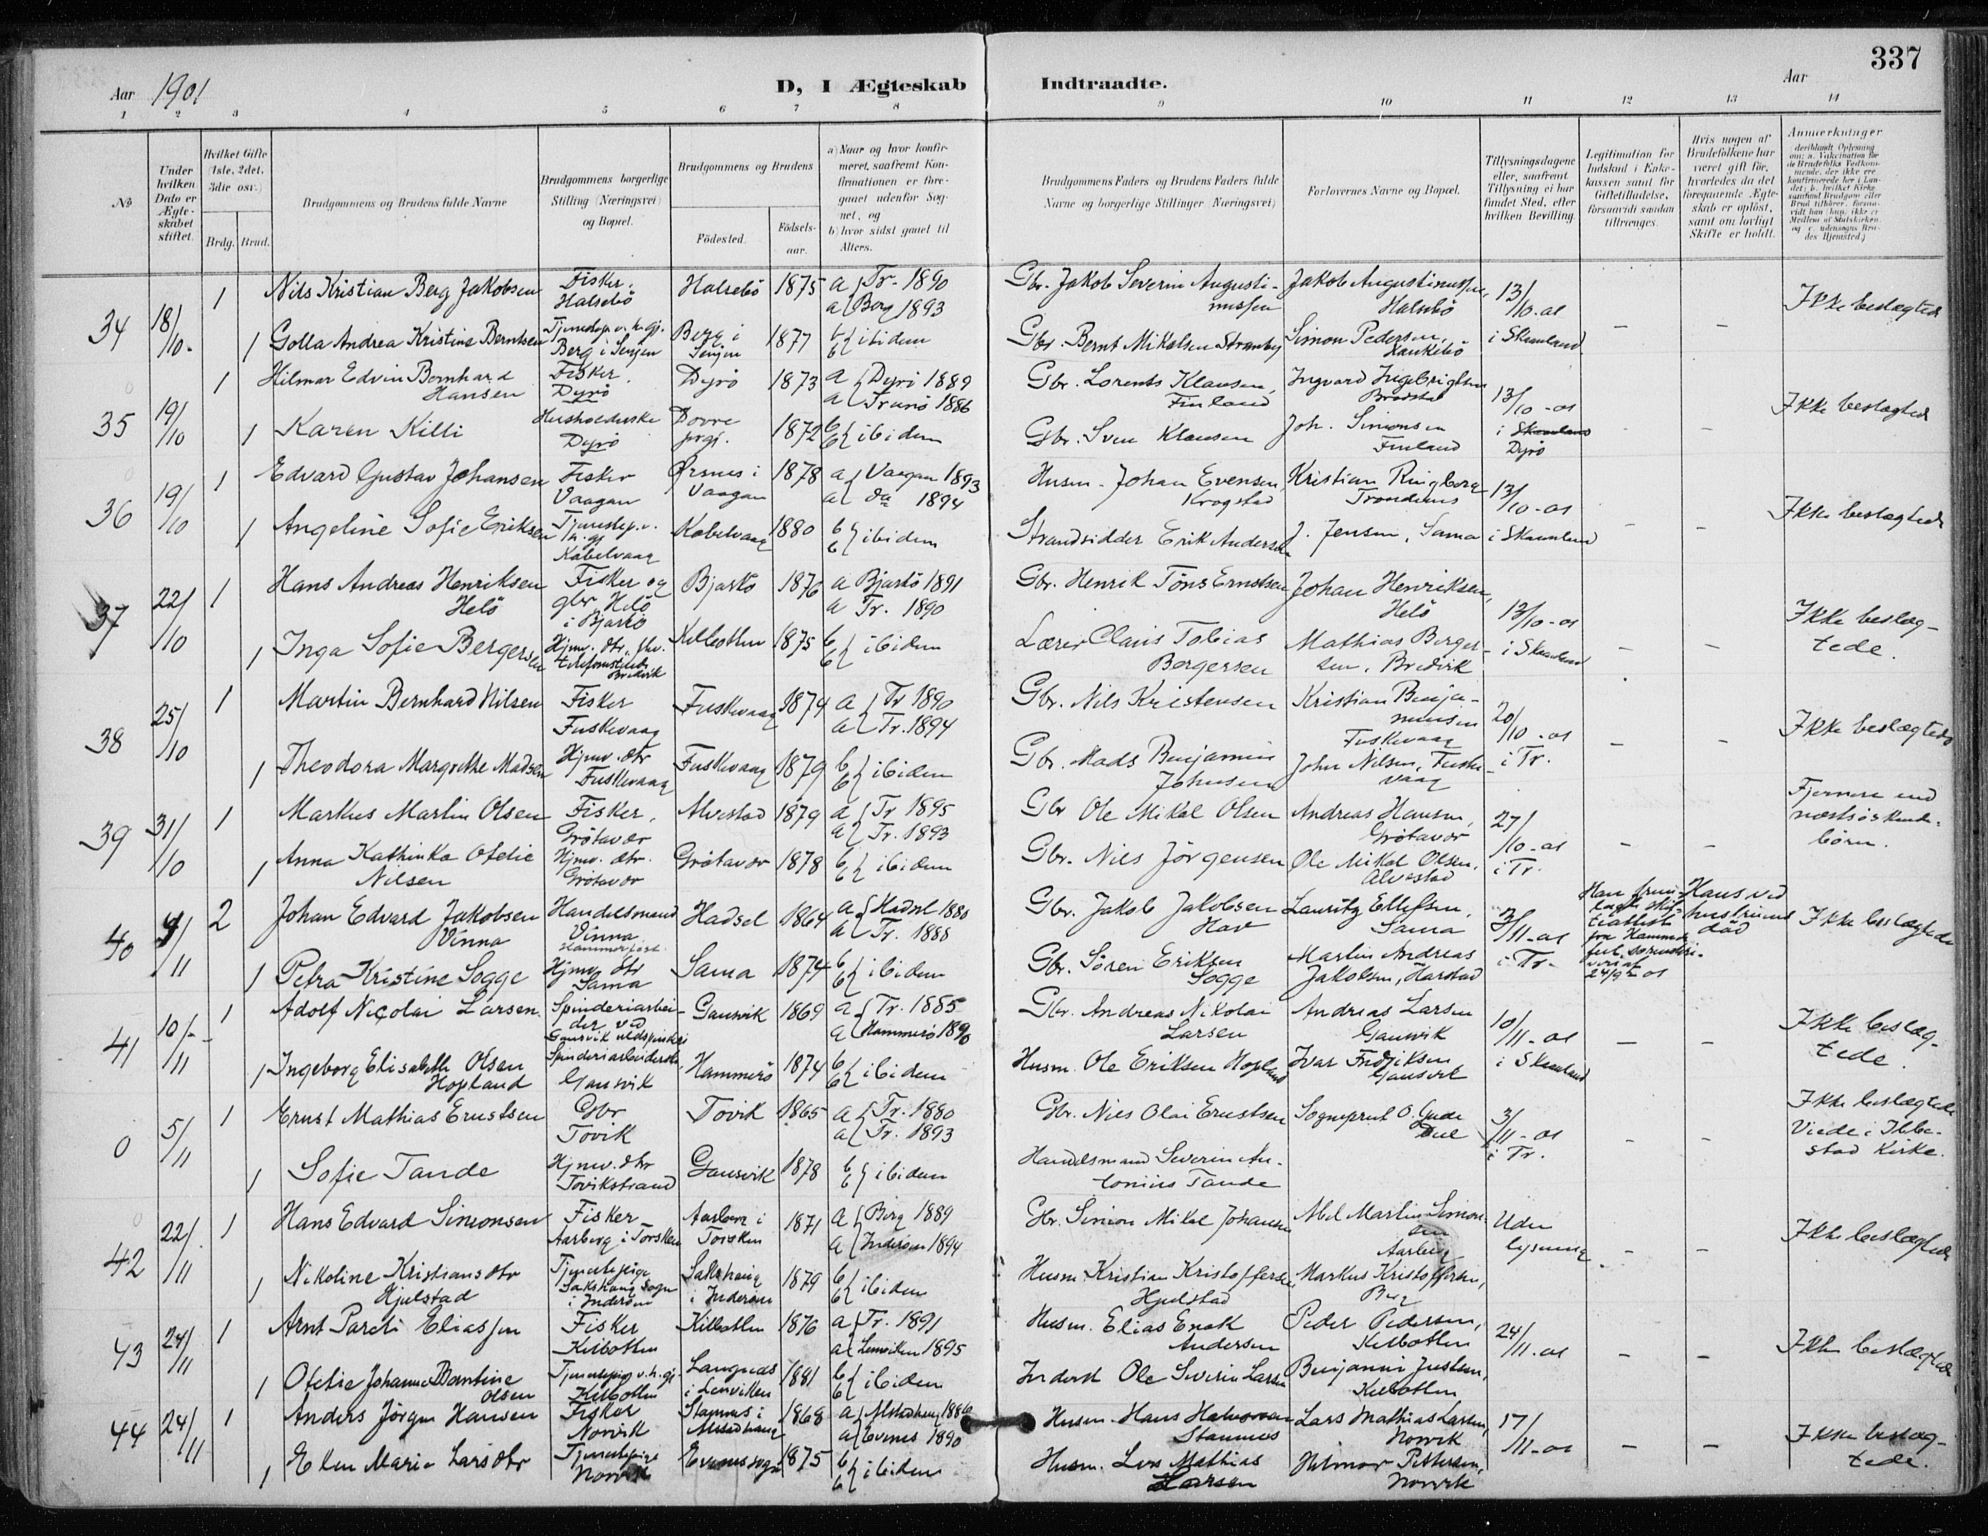 337
Aar 1901
D, I Ægteskab Indtraadte.
Aar
1 2 3 4 5 6 7 8 9 10 11 12 13 14
No
Under hvilken Dato er Ægteskabet stiftet.
Hvilket Gifte (1ste, 2det, 3die osv.)
Brdg. Brud.
Brudgommens og Brudens fulde Navne
Brudgommens borgerlige Stilling (Næringsvei) og Bopæl.
Brudgommens og Brudens
Födested.
Födsels-aar.
a) Naar og hvor konfirmeret, saafremt Konfirmationen er foregaaet udenfor Sognet, og
b) hvor sidst gaaet til Alters.
Brudgommens Faders og Brudens Faders fulde Navne og borgerlige Stillinger (Næringsvei)
Forlovernes Navne og Bopæl.
Tillysningsdagene eller, saafremt Tillysning ei har fundet Sted, efter hvilken Bevilling.
Legitimation for Indskud i Enkekassen samt for Giftetilladelse, forsaavidt saadan tiltrænges.
Hvis nogen af Brudefolkene har været gift för, hvorledes da det foregaaende Ægteskab er oplöst, samt om lovligt Skifte er holdt.
Anmerkninger
34 18/10. 1 Nils Kristian Berg Jakobsen Fisker, Halsebö Halsebö 1875 a Tr. 1890 a Berg 1893 Gbr. Jakob Severin Augustinussen Jakob Augustinussen, Halsebö 13/10-01 i Skaanland - - Ikke beslægtede
1 Golla Andrea Kristine Berntsen Berg i Senjen Berg i Senjen 1877 b ibidem Gbr. Bernt Mikalsen Simon Pedersen,
35 19/10 1 Hilmar Edvin Bernhard Hansen Fisker, Dyrö Dyrö 1873 a Dyrö 1889 a Tranö 1886 Gbr. Lorents Klausen, Finland Ingvard Ingebrigtsen 13/10-01 i Dyrö - - Ikke beslægtede
1 Karen Killi Husholderske Dyrö Dovre prgj. 1872 b ibidem Gbr. Sven Klausen Joh. Simonsen Finland
36 19/10 1 Edvard Gustav Johansen Fisker Vaagan Ørsnes i Vaagan 1878 a Vaagan 1893 a da 1894 Husm. Johan Evensen, Krogstad Kristian Ringberg Trondenes 13/10-01 i Skaanland - - Ikke beslægtede
1 Angeline Sofie Eriksen Tjenestep. v. h. gj. Kabelvaag Kabelvaag 1880 b ibidem Strandsidder Erik Andersen J. Jensen, Sama
37 22/10 1 Hans Andreas Henriksen Helö Fisker og gbr. Helö i Bjarkö Bjarkö 1876 a Bjarkö 1891 a Tr. 1890 Gbr. Henrik Töns Ernstsen Johan Henriksen, Helö 13/10-01 i Skaanland - - Ikke beslægtede.
1 Inga Sofie Bergersen Hjmv. dtr. Bredvik Kilbotten 1875 b ibidem Lærer Claus Tobias Bergersen Mathias Bergersen, Bredvik
38 25/10 1 Martin Bernhard Nilsen Fisker Fuskevaag Fuskevaag 1874 a Tr 1890 a Tr. 1894 Gbr. Nils Kristensen Kristian Benjaminsen Fuskevaag 20/10-01 i Tr. - - Ikke beslægtede
1 Theodora Margrethe Madsen Hjmv. dtr Fuskevaag Fuskevaag 1879 b ibidem Gbr. Mads Benjamin Johnsen John Nilsen, Fuskevaag
39 31/10 1 Markus Martin Olsen Fisker, Grötavær Alvestad 1879 a Tr 1895 a Tr. 1893 Gbr Ole Mikal Olsen Andreas Hansen, Grötavær 27/10-01 i Tr. - - Fjernere end næstsöskendebörn.
1 Anna Kathinka Ofelie Nilsen Hjmv. dtr. Grötavær Grötavær 1878 b ibidem Gbr. Nils Jörgensen Ole Mikal Olsen, Alvestad
40 4/11 2 Johan Edvard Jakobsen Vinna Handelsmand Vinna, Hammerfest Hadsel 1864 a Hadsel 1880 a Tr. 1888 Gbr. Jakob Jakobsen Hav Lauritz Ellefsen, Sama 3/11-01 i Tr. 24/9-01 Hans ved hustruens död Ikke beslægtede
1 Petra Kristine Sogge Hjmv. dtr Sama Sama 1874 b ibidem Gbr. Sören Eriksen Sogge Martin Andreas Jakobsen, Harstad
41 10/11 1 Adolf Nicolai Larsen Spinderiarbeider ved Gausvik uldspinderi Gausvik 1869 a Tr. 1885 a Hammerö 1890 Gbr. Andreas Nikolai Larsen Andreas Larsen Gausvik 10/11-01 i Skaanland - - Ikke beslægtede.
1 Ingeborg Elisabeth Olsen Hopland Spinderiarbeiderske, Gausvik Hammerö 1874 b ibidem Husm. Ole Eriksen Hopland Ivar Fredriksen Gausvik
0 5/11 1 Ernst Mathias Ernstsen Gbr Tovik Tovik 1865 a Tr. 1880 a Tr. 1893 Gbr. Nils Olai Ernstsen Sogneprest O. Gude 3/11-01 i Tr. - - Ikke beslægtede Viede i Ibbestad Kirke.
1 Sofie Tande Hjmv. dtr Tovikstrand Gausvik 1878 b ibidem Handelsmand Severin Antonius Tande
42 22/11 1 Hans Edvard Simonsen Fisker Aarberg i Torsken Aarberg i Torsken 1871 a Berg 1889 a Inderöen 1894 Gbr. Simon Mikal Johansen Abel Martin Simonsen Aarberg Uden lysning - - Ikke beslægtede
1 Nikoline Kristiansdtr Hjelstad Tjenestepige Sakshaug Sogn i Inderöen Sakshaug i Inderöen 1879 b ibidem Husm. Kristian Kristoffersen Hjelstad Markus Kristoffersen, Berg
43 24/11 1 Arnt Pareli Eliassen Fisker Kilbotten Kilbotten 1876 a Tr. 1891 a Lenviken 1895 Husm. Elias Enok Andersen Peder Pedersen, Kilbotten 24/11-01 - - Ikke beslægtede
1 Ofelie Johanne Dantine Olsen Tjenestepige v. h. gj. Kilbotten Langnes i Lenviken 1881 b ibidem Inderst Ole Severin Larsen Benjamin Justsen, Kilbotten
44 24/11 1 Anders Jörgen Hansen Fisker Norvik Stamnes i Alstadhaug 1868 a Alstadhaug 1886 a Evenes 1890 Husm. Hans Halvorsen Stamnes Lars Mathias Larsen, Norvik 17/11-01 - - Ikke beslægtede.
1 Elen Marie Larsdtr Tjenestepige Norvik Evenes sogn 1875 b ibidem Husm. Lars Mathias Larsen Hilmar Pettersen, Norvik